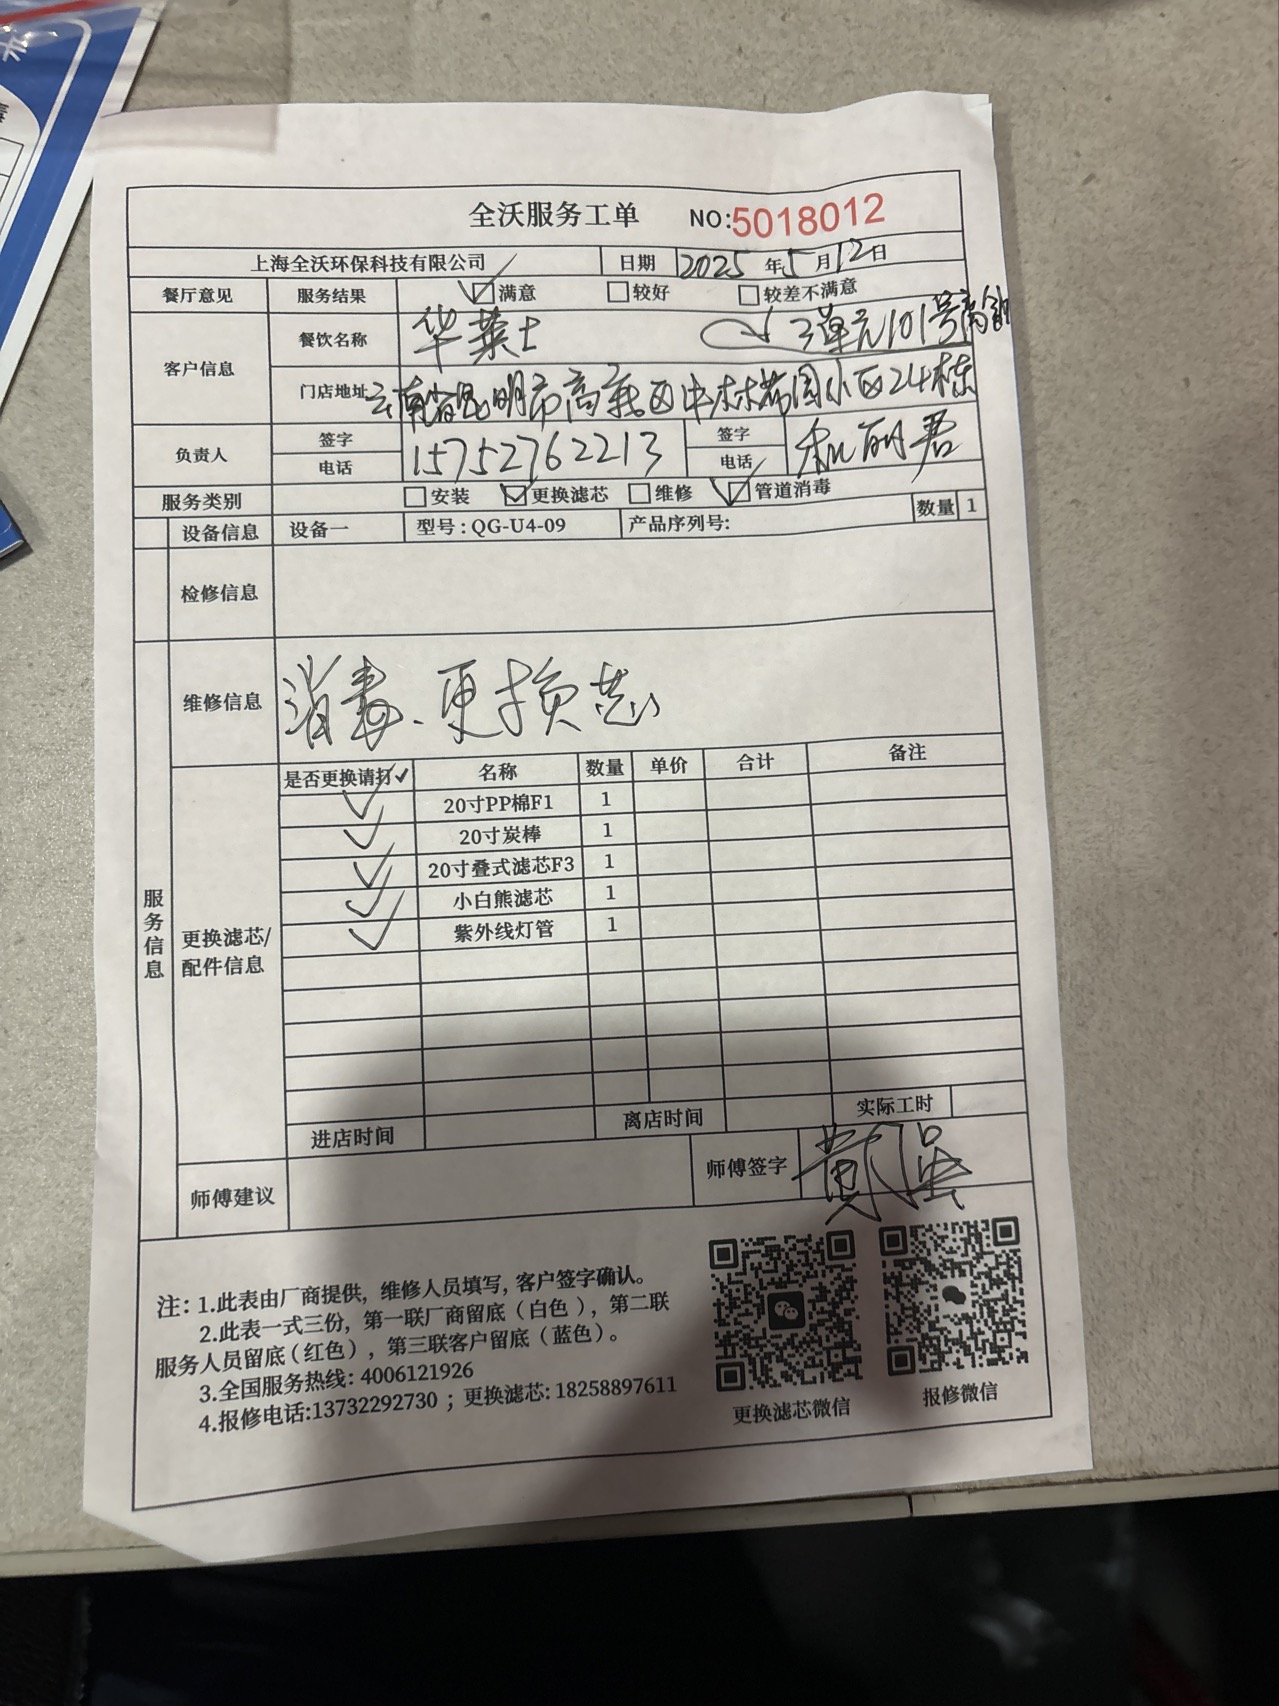 全沃服务工单 NO:5018012
上海全沃环保科技有限公司 日期 2025年5月12日
餐厅意见 服务结果 ☑满意 ☐较好 ☐较差不满意
客户信息 餐饮名称 华莱士 3单元101号商铺
门店地址 云南省昆明市高新区中林佳园小区24栋
负责人 签字 电话 15752762213 签字 电话 和丽君
服务类别 ☐安装 ☑更换滤芯 ☐维修 ☑管道消毒
设备信息 设备一 型号:QG-U4-09 产品序列号: 数量 1
检修信息
维修信息 消毒、更换滤芯
服务信息
是否更换请打✓ 名称 数量 单价 合计 备注
✓ 20寸PP棉F1 1
✓ 20寸炭棒 1
✓ 20寸叠式滤芯F3 1
✓ 小白熊滤芯 1
更换滤芯/配件信息 ✓ 紫外线灯管 1
进店时间 离店时间 实际工时
师傅建议 师傅签字
注:1.此表由厂商提供, 维修人员填写, 客户签字确认。
2.此表一式三份, 第一联厂商留底(白色), 第二联
服务人员留底(红色), 第三联客户留底(蓝色)。
3.全国服务热线: 4006121926
4.报修电话:13732292730 ; 更换滤芯: 18258897611
更换滤芯微信 报修微信